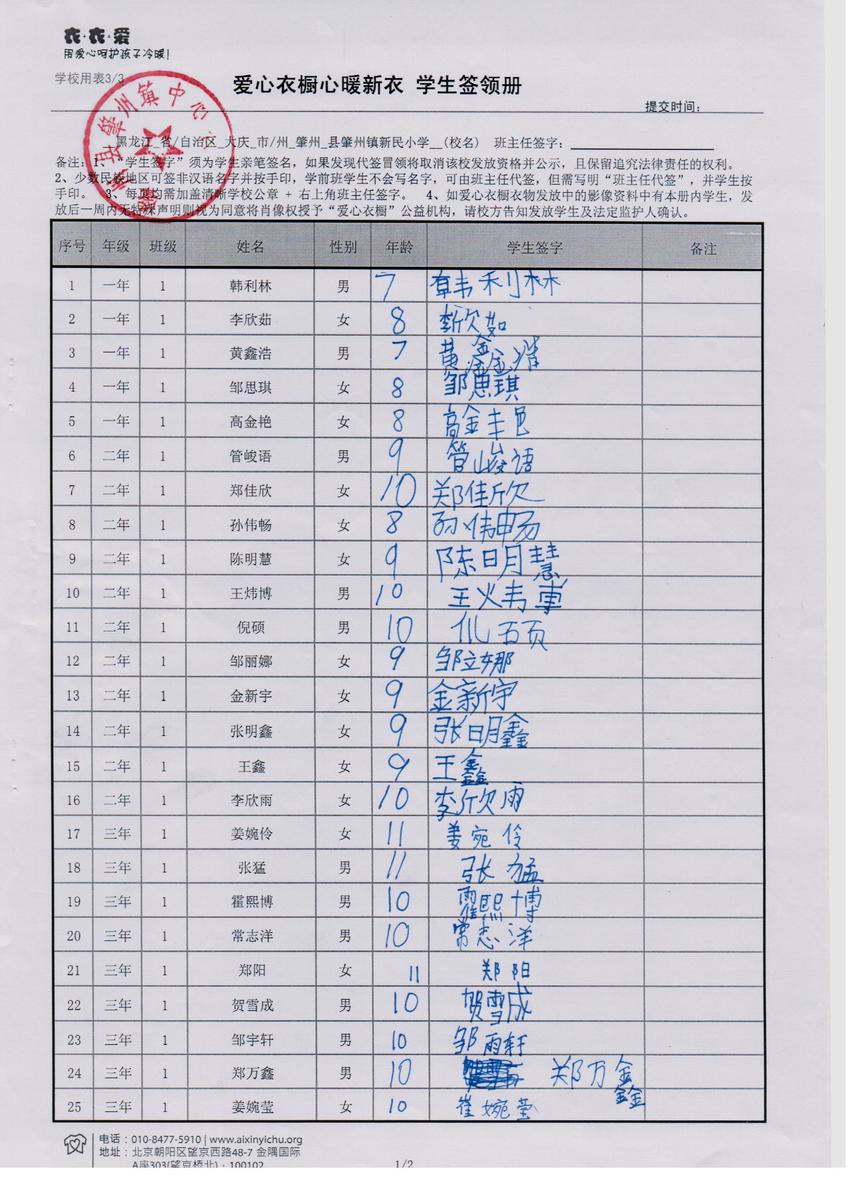 衣·衣·爱
用爱心呵护孩子冷暖!
学校用表3/3
爱心衣橱心暖新衣 学生签领册
提交时间:
黑龙江_省/自治区_大庆_市/州_肇州_县肇州镇新民小学__(校名) 班主任签字:
备注: 1、"学生签字"须为学生亲笔签名,如果发现代签冒领将取消该校发放资格并公示,且保留追究法律责任的权利。
2、少数民族地区可签非汉语名字并按手印,学前班学生不会写名字,可由班主任代签,但需写明"班主任代签",并学生按
手印。 3、每页均需加盖清晰学校公章 + 右上角班主任签字。 4、如爱心衣橱衣物发放中的影像资料中有本册内学生,发
放后一周内无特殊声明则视为同意将肖像权授予"爱心衣橱"公益机构,请校方告知发放学生及法定监护人确认。
州县肇州镇中心
序号 年级 班级 姓名 性别 年龄 学生签字 备注
1 一年 1 韩利林 男 7 韩利林
2 一年 1 李欣茹 女 8 李欣如
3 一年 1 黄鑫浩 男 7 黄鑫
4 一年 1 邹思琪 女 8 邹思琪
5 一年 1 高金艳 女 8 高金艳
6 二年 1 管峻语 男 9 管峻语
7 二年 1 郑佳欣 女 10 郑佳欣
8 二年 1 孙伟畅 女 8 孙伟畅
9 二年 1 陈明慧 女 9 陈明慧
10 二年 1 王炜博 男 10 王炜
11 二年 1 倪硕 男 10 硕
12 二年 1 邹丽娜 女 9 邹立娜
13 二年 1 金新宇 女 9 金新宇
14 二年 1 张明鑫 女 9 张明鑫
15 二年 1 王鑫 女 9 王鑫
16 二年 1 李欣雨 女 10 李欣雨
17 三年 1 姜婉伶 女 11 姜宛伶
18 三年 1 张猛 男 11 张猛
19 三年 1 霍熙博 男 10 霍熙博
20 三年 1 常志洋 男 10 常志洋
21 三年 1 郑阳 女 11 郑阳
22 三年 1 贺雪成 男 10 贺雪成
23 三年 1 邹宇轩 男 10 邹雨轩
24 三年 1 郑万鑫 男 10 郑万鑫
25 三年 1 姜婉莹 女 10 崔婉莹
电话:010-8477-5910 | www.aixinyichu.org
地址:北京朝阳区望京西路48-7 金隅国际
A座303(望京桥北)·100102
1/2